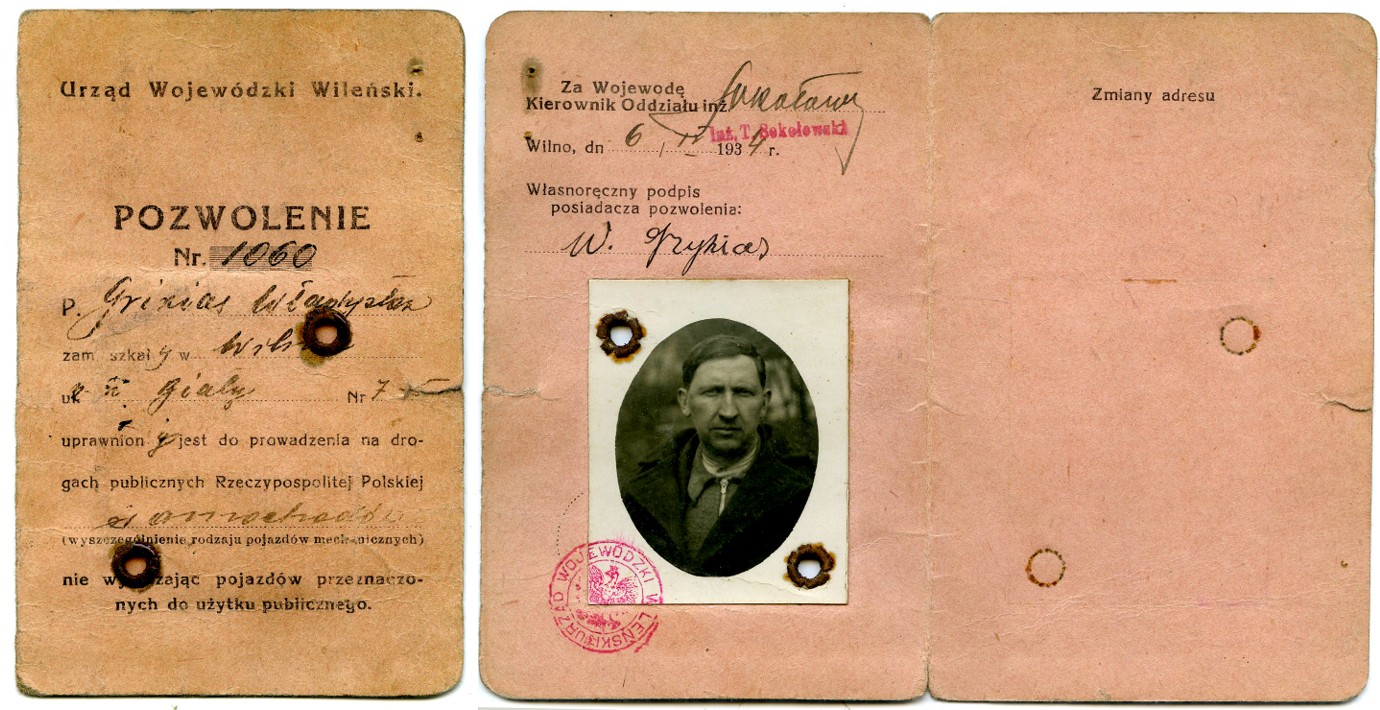 Urząd Wojewódzki Wileński.
POZWOLENIE
Nr. 1060
P. Grikias Władysław
zam szkały w
ul. Nr 7
uprawniony jest do prowadzenia na dro-
gach publicznych Rzeczypospolitej Polskiej
samochodów
(wyszczególnienie rodzaju pojazdów mechanicznych)
nie wy zając pojazdów przeznaczo-
nych do użytku publicznego.
Za Wojewodę
Kierownik Oddziału inż.
inż. T. Sokołowski
Wilno, dn 6 / IV 1934 r.
Własnoręczny podpis
posiadacza pozwolenia:
W.
URZĄD WOJEWÓDZKI WILEŃSKI
Zmiany adresu